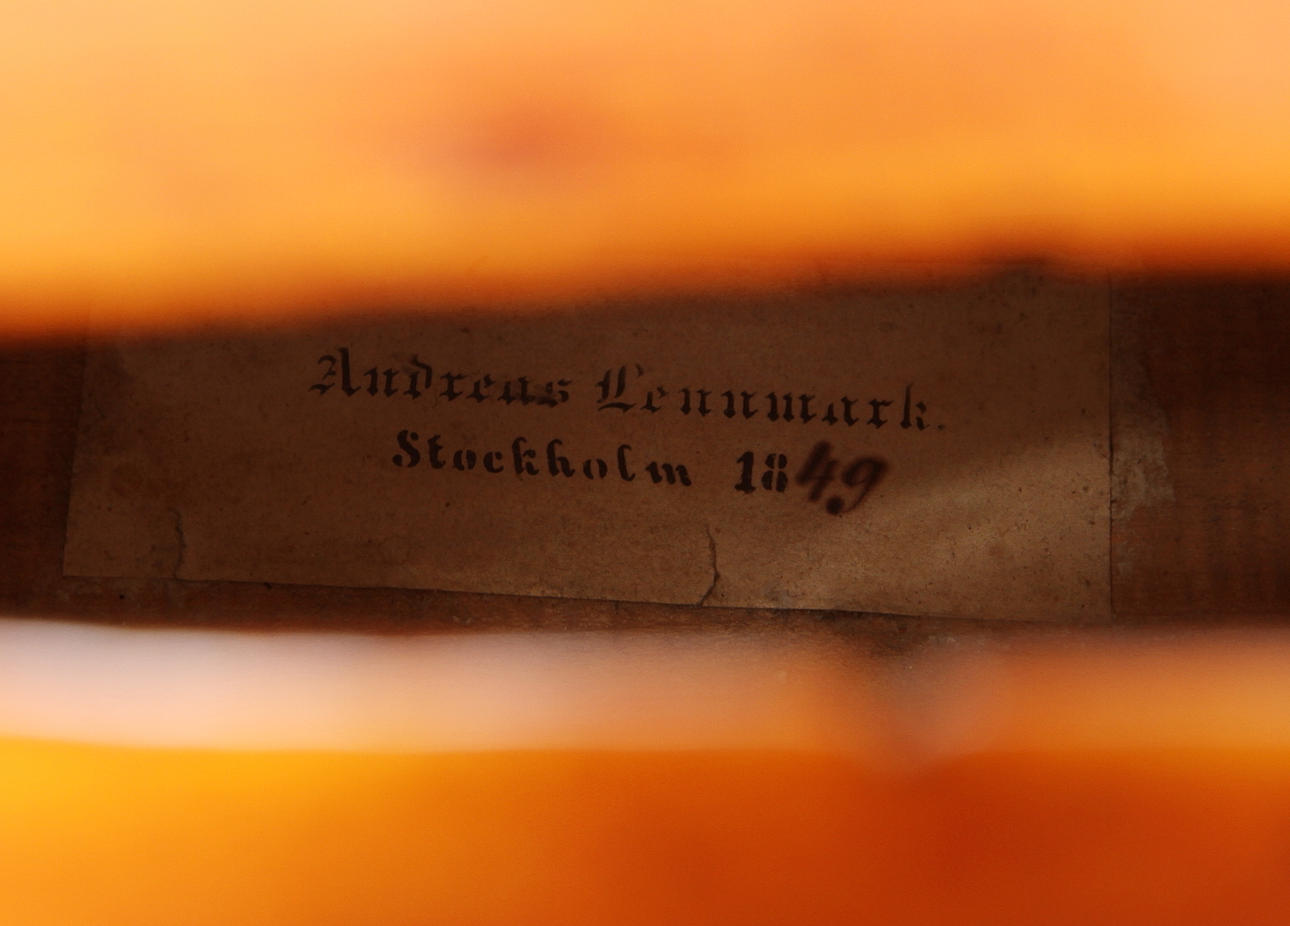 Andreas Lennmark.
Stockholm 1849